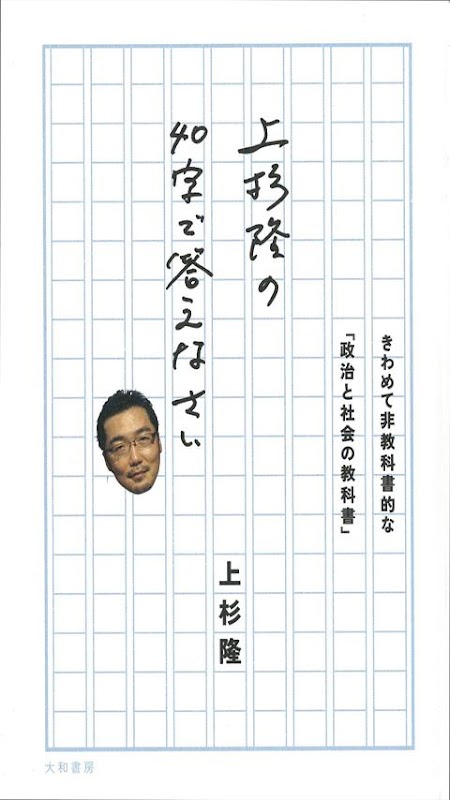 きわめて非教科書的な
「政治と社会の教科書」
上杉隆の
40字で答えなさい
上杉隆
大和書房